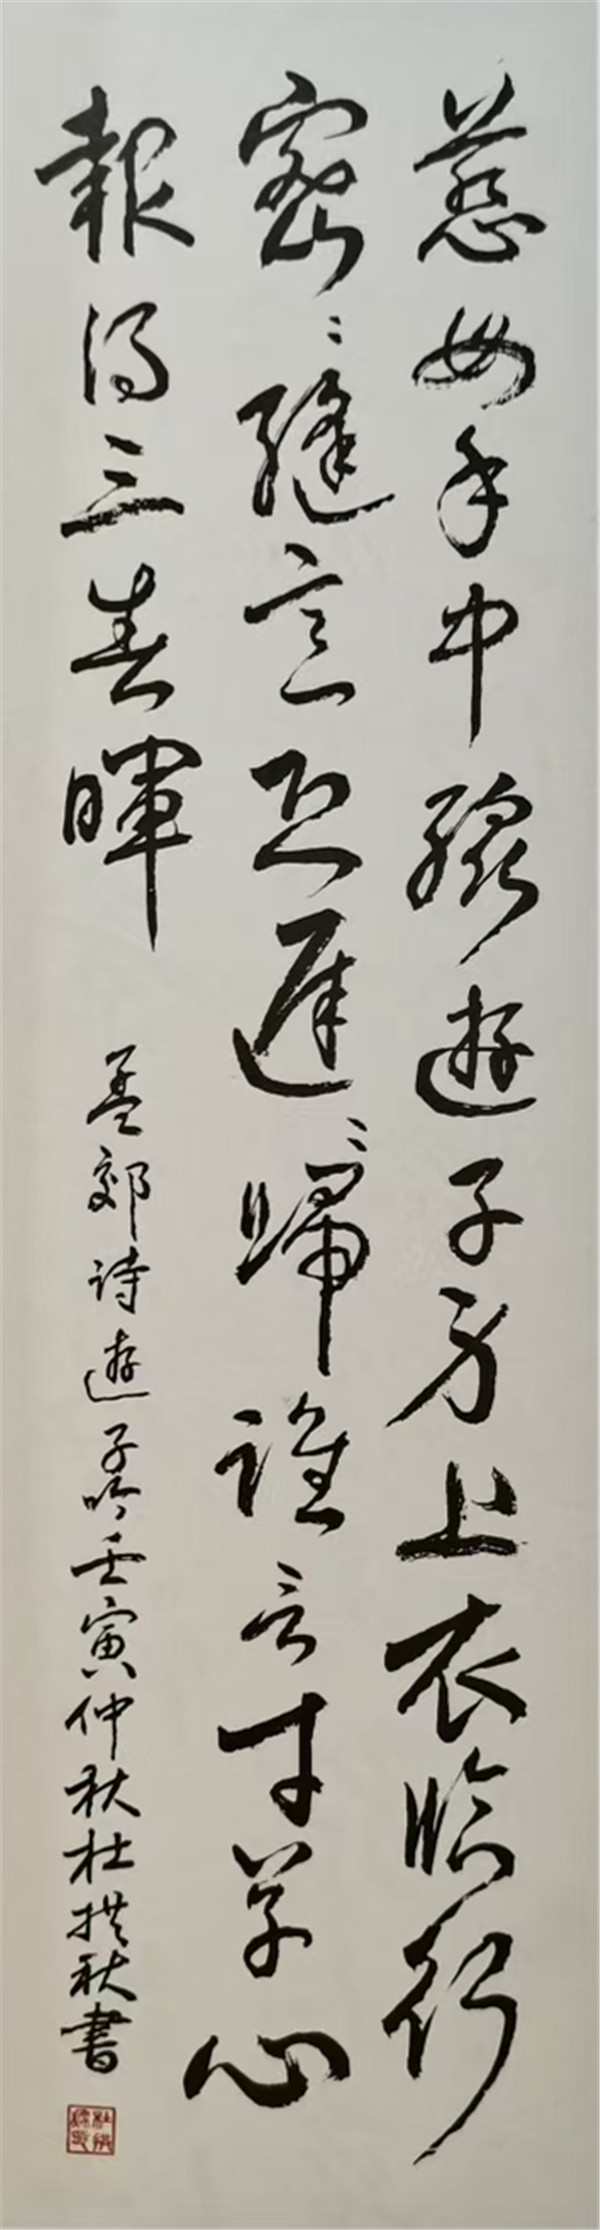 慈母手中線遊子身上衣臨行
密〻縫意恐遲〻歸誰言寸草心
報得三春暉
孟郊詩遊子吟壬寅仲秋杜拱秋書